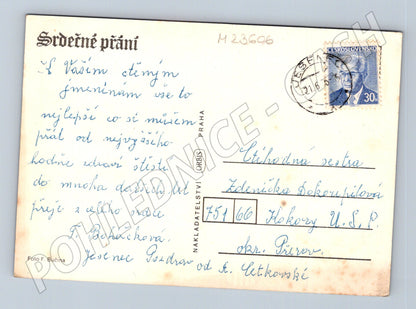 Srdečné přání
M 23606
K Vašim ctěným
jmeninám vše to
nejlepší co si můžem
přát od nejvyššího
hodně zdraví štěstí
do mnoha dalších let
přeje z celého srdce
F. Boháčková
Jesenec Pozdrav od A. Četkovské
Foto F.
NAKLADATELSTVÍ ORBIS PRAHA
JESENEC
21.6
ČESKOSLOVENSKO
30
Ctihodná sestra
Zdenička Dokoupilová
751 66 Kokory Ú.S.P.
okr. Přerov
POHLEDNICE